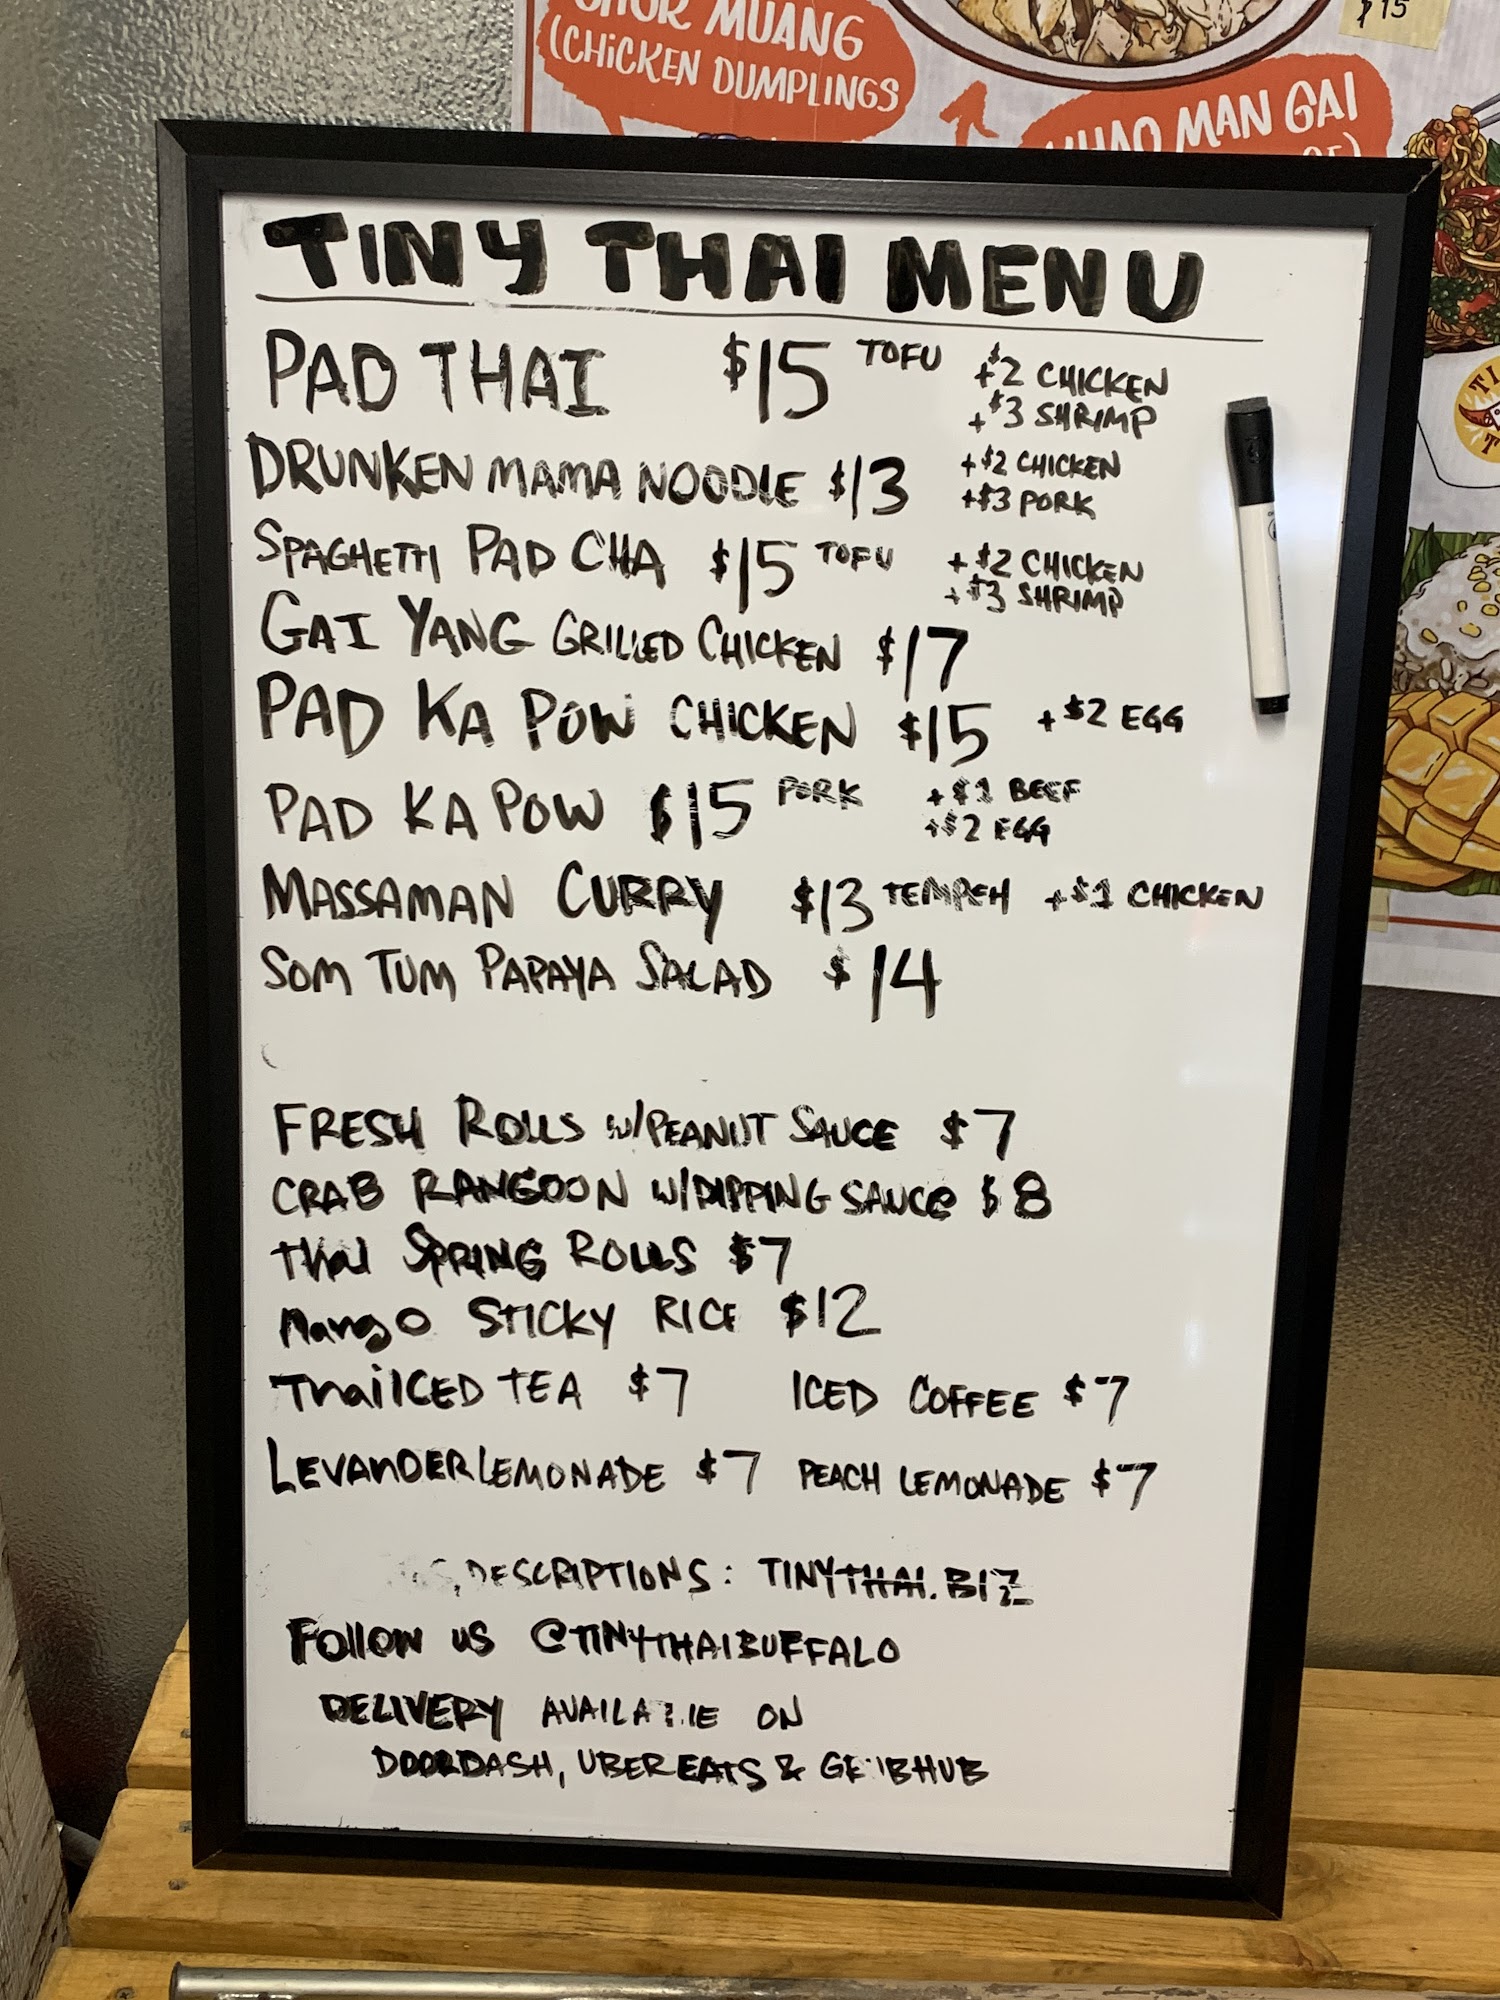 $15
CHOR MUANG
(CHICKEN DUMPLINGS
KHAO MAN GAI
TINY THAI MENU
PAD THAI $15 TOFU +$2 CHICKEN
+$3 SHRIMP
DRUNKEN MAMA NOODLE $13 +$2 CHICKEN
+$3 PORK
SPAGHETTI PAD CHA $15 TOFU +$2 CHICKEN
+$3 SHRIMP
GAI YANG GRILLED CHICKEN $17
PAD KA POW CHICKEN $15 +$2 EGG
PAD KA POW $15 PORK +$1 BEEF
+$2 EGG
MASSAMAN CURRY $13 TEMPEH +$1 CHICKEN
SOM TUM PAPAYA SALAD $14
FRESH ROLLS W/PEANUT SAUCE $7
CRAB RANGOON W/DIPPING SAUCE $8
thai SPRING ROLLS $7
Mango STICKY RICE $12
ThaiICED TEA $7 ICED COFFEE $7
LEVANDER LEMONADE $7 PEACH LEMONADE $7
DESCRIPTIONS: TINYTHAI.BIZ
Follow us @TINYTHAIBUFFALO
DELIVERY AVAILABLE ON
DOORDASH, UBER EATS & GRUBHUB